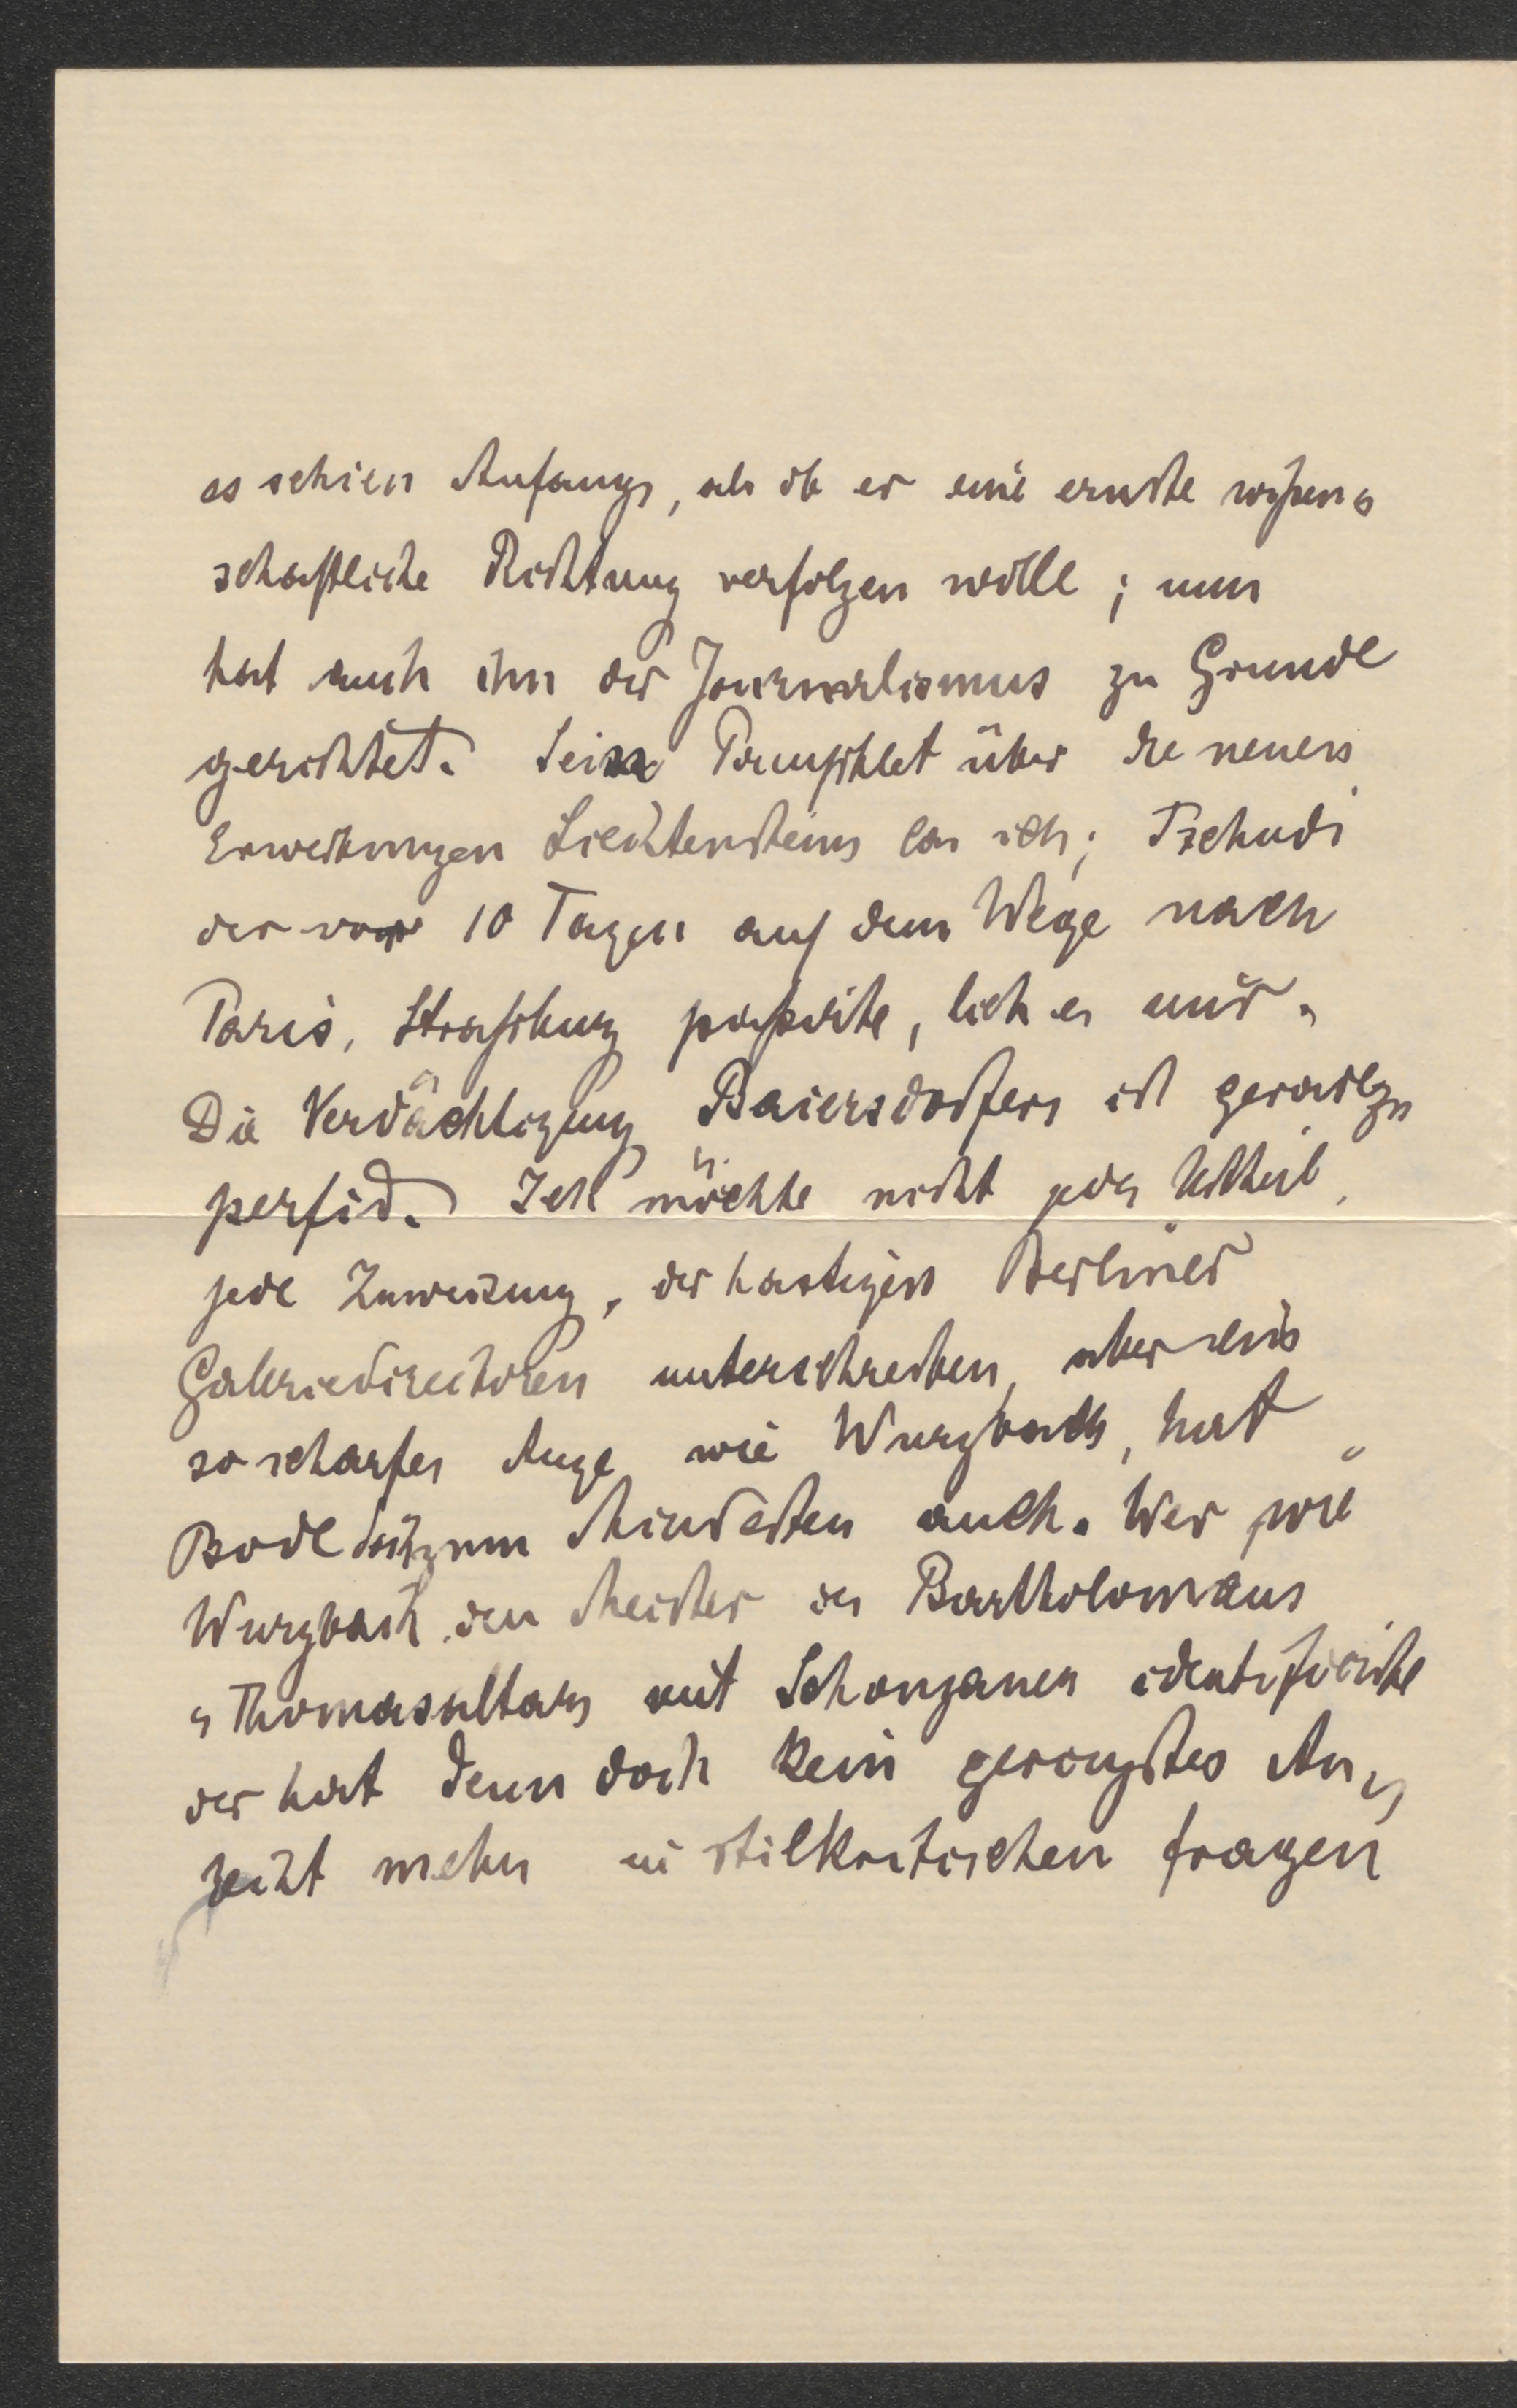 es schien Anfangs, als ob er eine ernste wissen=
schaftliche Richtung verfolgen wolle; nun
hat auch ihn der Journalismus zu Grunde
gerichtet. Sein Pamphlet über die neuen
Erwerbungen Liechtensteins las ich; Tschudi
der vor 10 Tagen auf dem Wege nach
Paris, Straßburg passirte, lieh es mir.
Die Verdächtigung Baiersdorfers ist geradezu
perfid. Ich möchte nicht jedes Urtheil,
jede Zuweisung, der hastigen Berliner
Galeriedirectoren unterschreiben, aber ein
so scharfes Auge wie Wurzbach, hat
Bode doch zum Mindesten auch. Wer wie
Wurzbach den Meister des Bartholomäus
u Thomasaltars mit Schongauer identificirte
der hat denn doch kein geringstes An=
recht mehr in stilkritischen Fragen